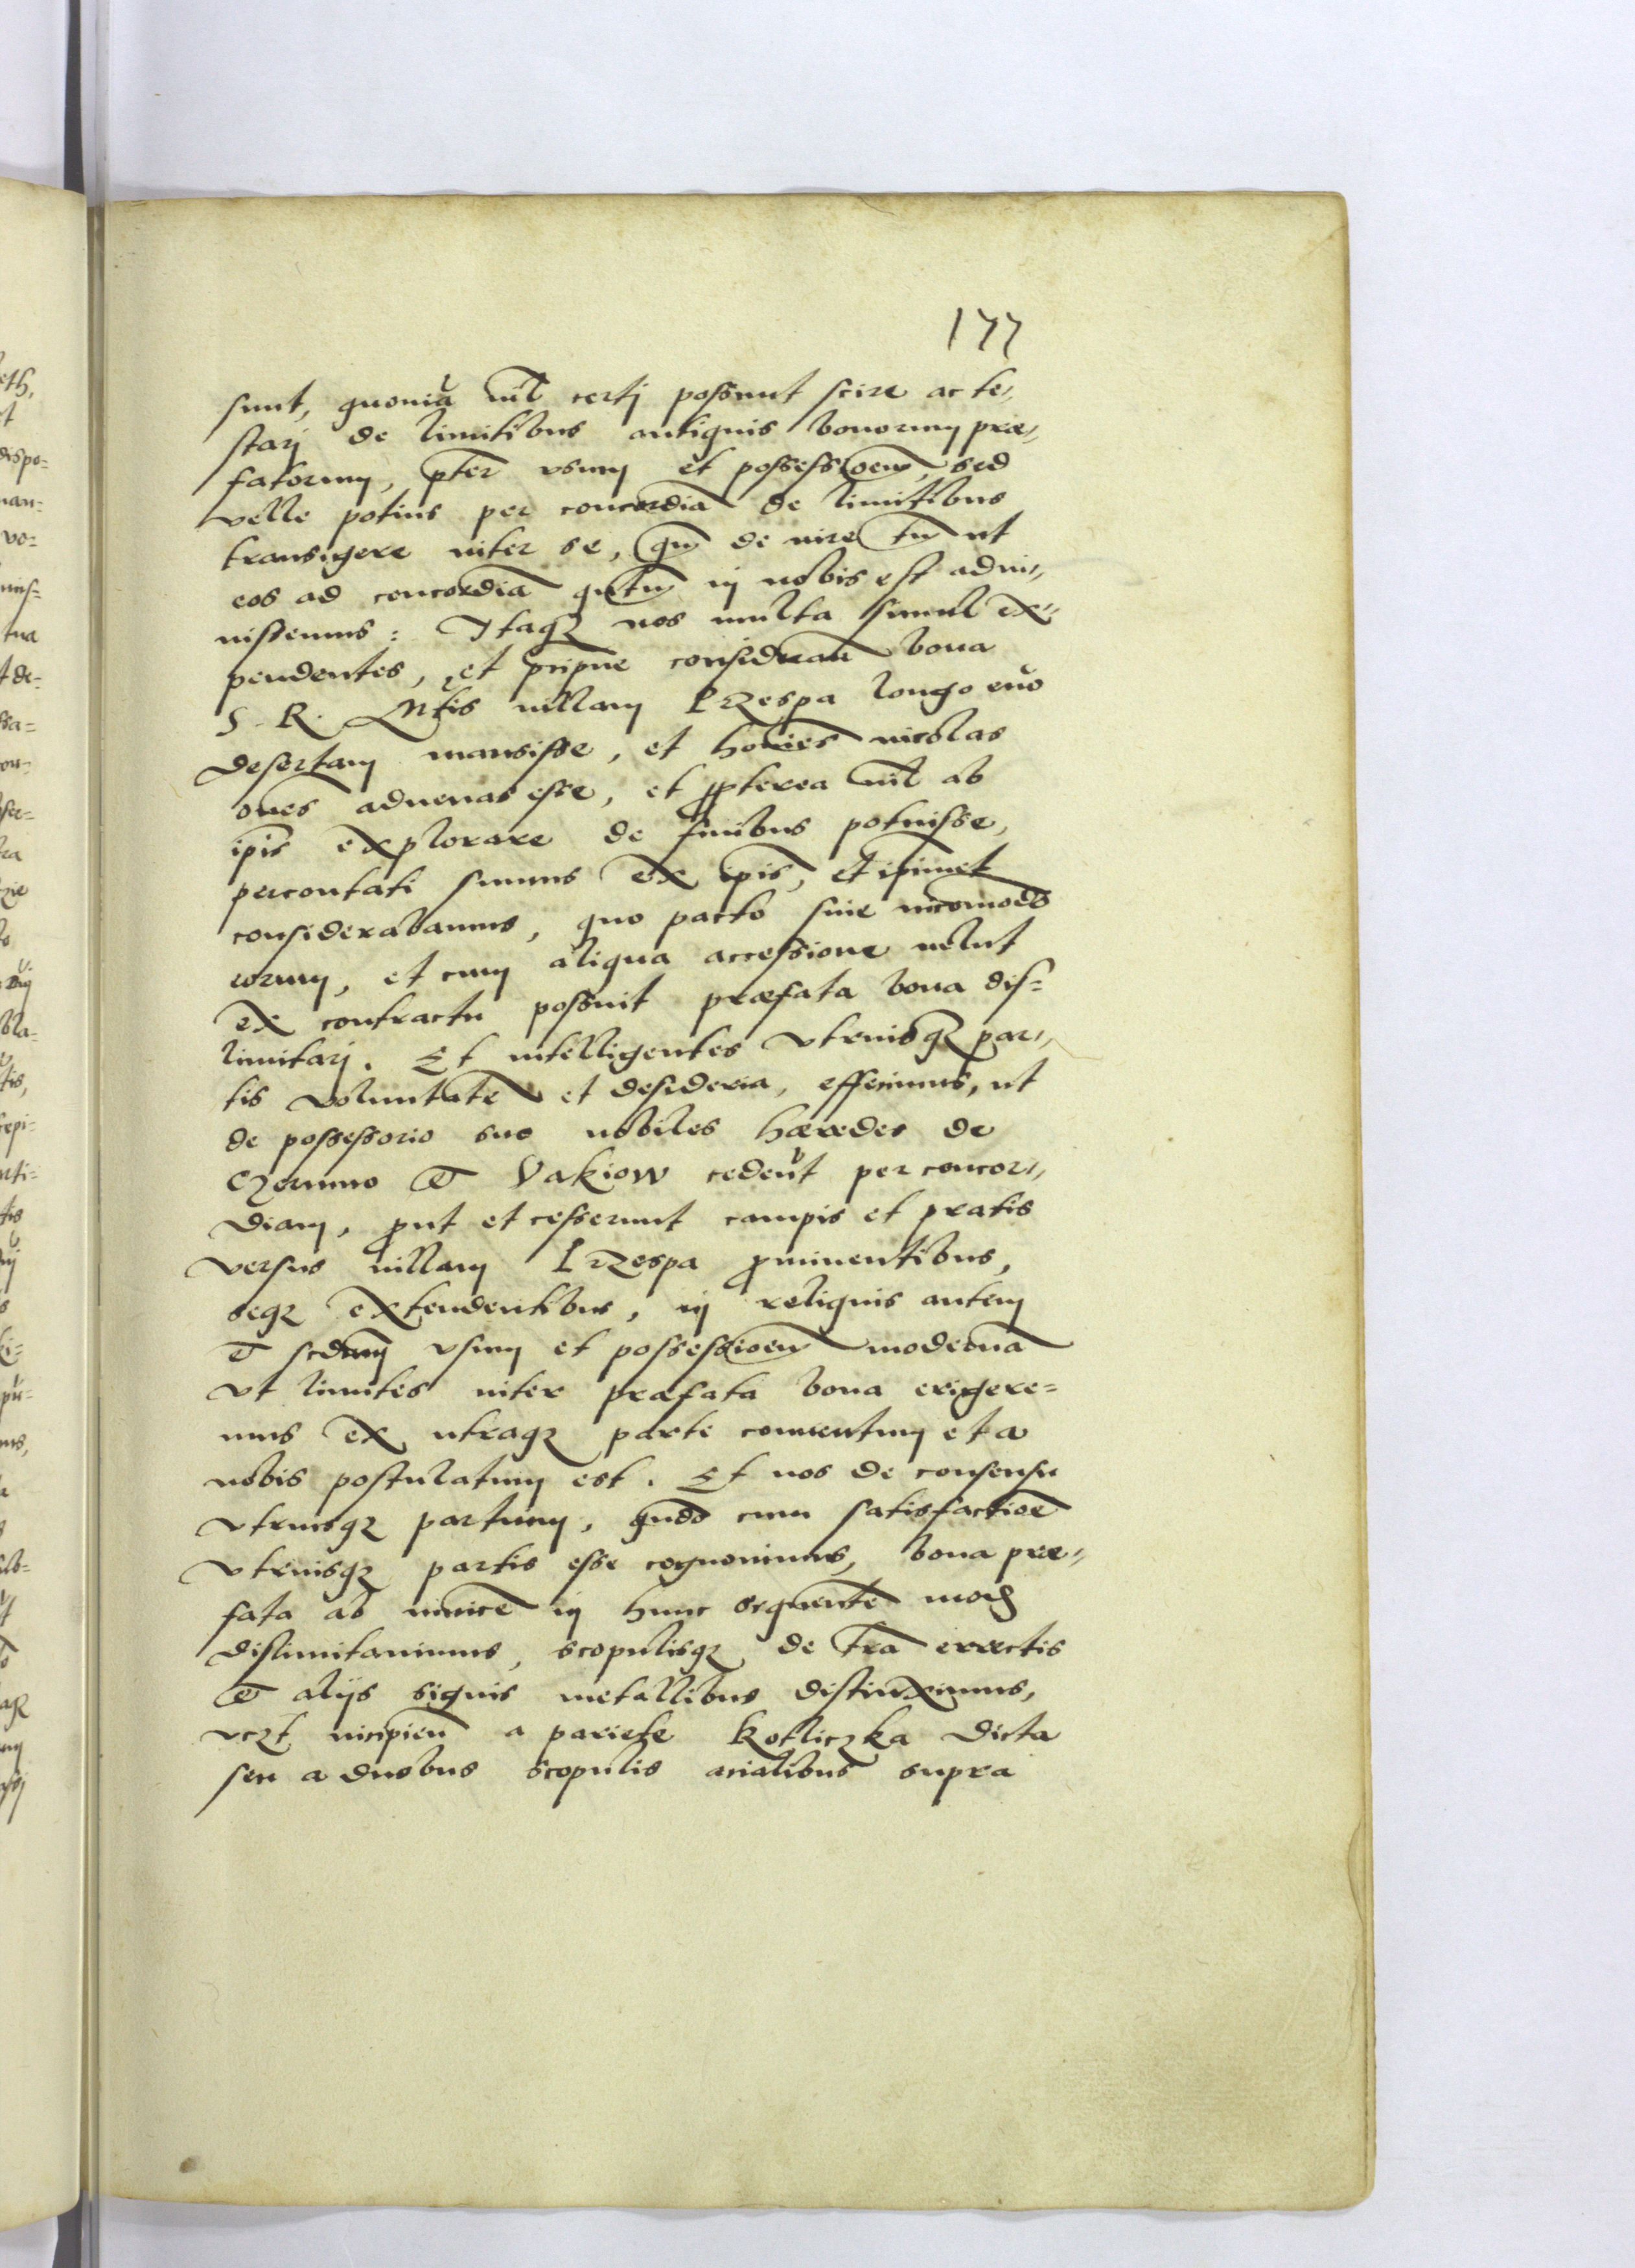 177
sunt, quoniã nil certi possunt scire ac te,
stari de limitibus antiquis bonorum præ,
fatorum, pter usum et possessioem, sed
velle potius per concordiã de limitibus
transigere inter se, qm de iure tm ut
eos ad concordiã qntum in nobis est admi,,
nistremus: Itaq3 nos multa simul ex,,
pendentes, et pcipue considerãn bona
S. R. Mtis villam Przespa longo euo
desertam mansisse, et homines incolas
oms aduenas esse, et ppterea nil ab
ipis explorare de finibus potuisse,
percontati sumus ex ipis, et ipimet
considerabamus, quo pacto sine incomodo
eorum, et cum aliqua accessione uelut
ex contractu possint præfata bona dis=
limitari. Et intelligentes utriusq3 par,,
tis voluntatẽ et desideria, effecimus, ut
de possessorio suo nobiles hæredes de
Czermno et Vakiow cedeũt per concor,,
diam, put et cesserunt campis et pratis
versus villam Przespa pminentibus,
seq3 extendentibus, in reliquis autem
et scdum usum et possessioem modernã
ut limites inter præfata bona erigere=
mus ex utraq3 parte conuentum et a
nobis postulatum est. Et nos de consensu
utriusq3 partium, qndo cum satisfactioe
utriusq3 partis esse cognouimus, bona præ,,
fata ab inuicẽ in hunc sequentẽ mod
dislimitauimus, scopulisq3 de trã errectis
et alijs signis metallibus distinximus,
vczt incipien a pariete Kotliczka dicta
seu a duobus scopulis acialibus supra